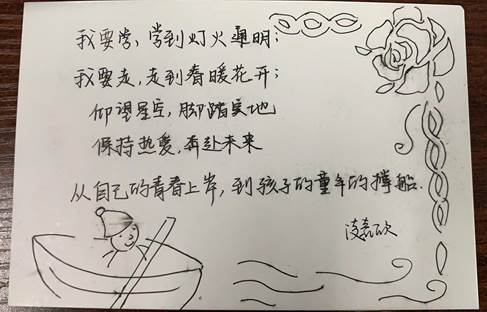 我要学，学到灯火通明；
我要走，走到春暖花开；
仰望星空，脚踏实地
保持热爱，奔赴未来
从自己的青春上岸，到孩子的童年的撑船.